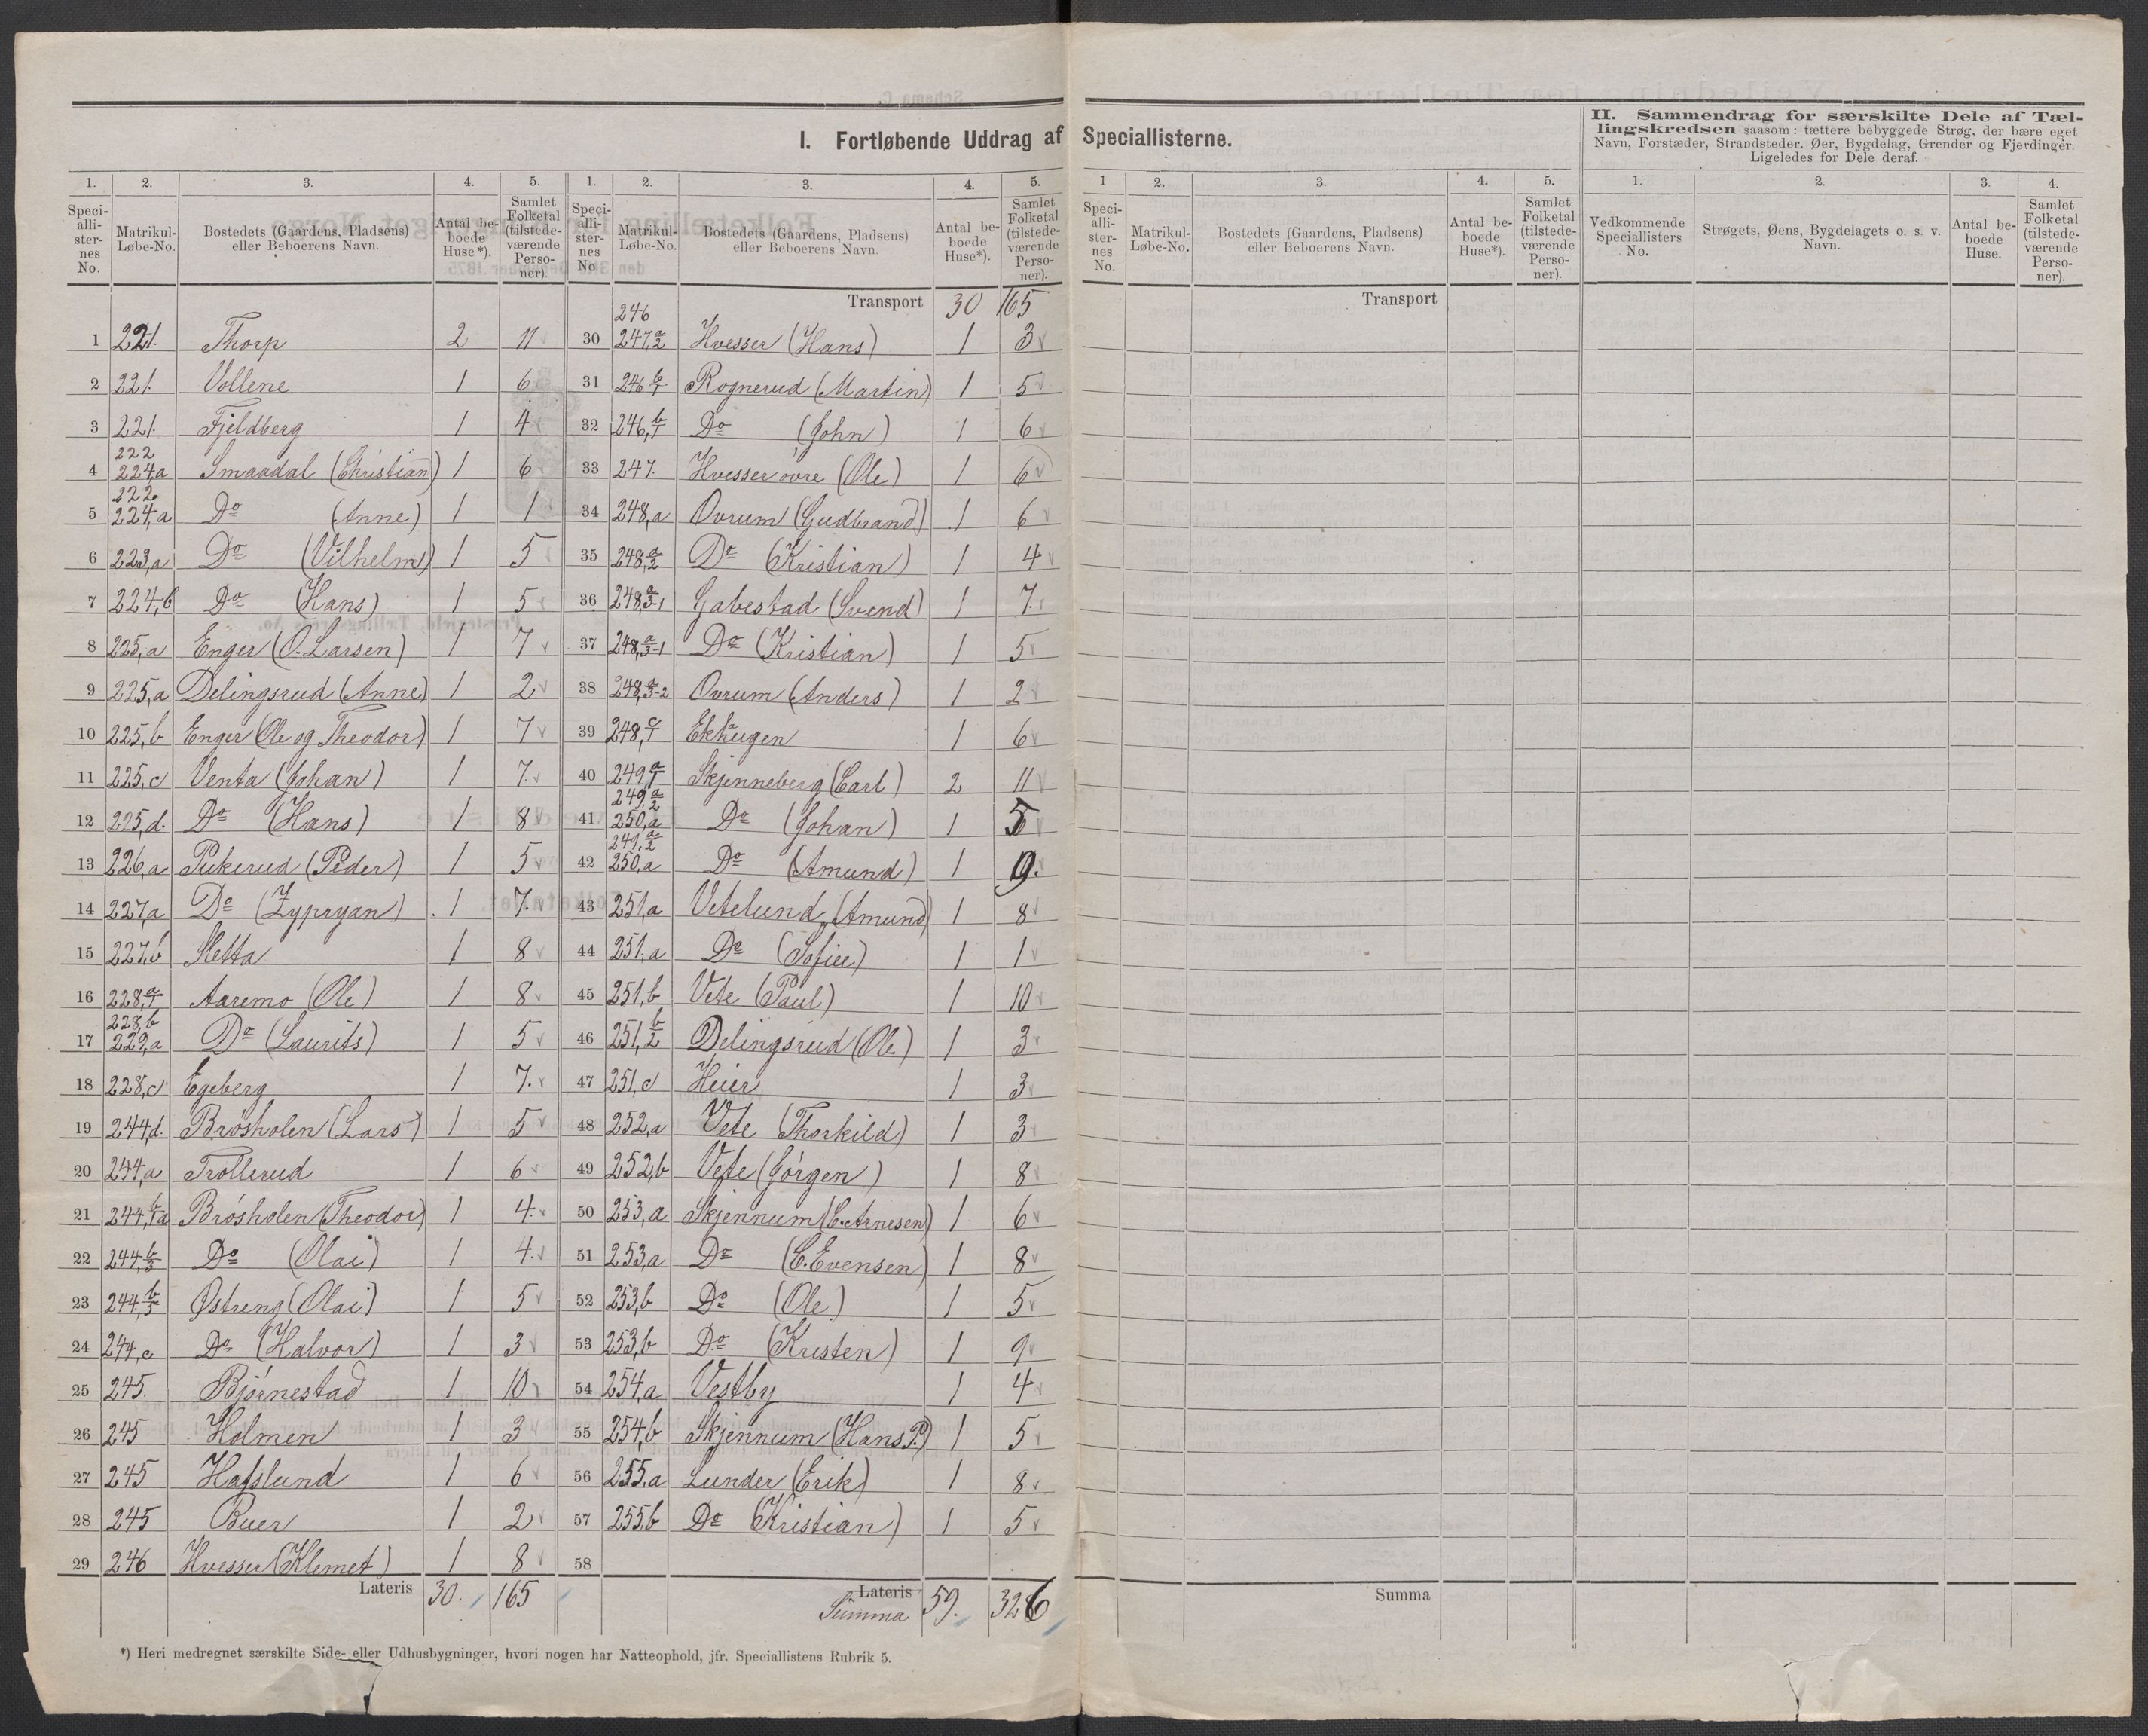 I. Fortløbende Uddrag af Speciallisterne.
II. Sammendrag for særskilte Dele af Tæl-
lingskredsen saasom: tættere bebyggede Strøg, der bære eget
Navn, Forstæder, Strandsteder, Øer, Bygdelag, Grender og Fjerdinger.
Ligeledes for Dele deraf.
1. 2. 3. 4. 5. 1. 2. 3. 4. 5. 1 2. 3. 4. 5. 1. 2. 3. 4.
Speci-alli-ster-nes No. Matrikul-Løbe-No. Bostedets (Gaardens, Pladsens) eller Beboerens Navn. Antal be-boede Huse*). Samlet Folketal (tilstede-værende Perso-ner).
Speci-alli-ster-nes No. Matrikul-Løbe-No. Bostedets (Gaardens, Pladsens) eller Beboerens Navn. Antal be-boede Huse*). Samlet Folketal (tilstede-værende Perso-ner).
Speci-alli-ster-nes No. Matrikul-Løbe-No. Bostedets (Gaardens, Pladsens) eller Beboerens Navn. Antal be-boede Huse*). Samlet Folketal (tilstede-værende Perso-ner).
Vedkommende Speciallisters No. Strøgets, Øens, Bygdelagets o. s. v. Navn. Antal be-boede Huse. Samlet Folketal (tilstede-værende Perso-ner).
1 221. Thorp 2 11
2 221. Vollene 1 6
3 221. Fjeldberg 1 4
4 222 224,a Smaadal (Christian) 1 6
5 222 224,a Do (Anne) 1 1
6 223,a Do (Vilhelm) 1 5
7 224,b Do (Hans) 1 5
8 225,a Enger (O. Larsen) 1 7
9 225,a Delingsrud (Anne) 1 2
10 225,b Enger (Ole og Theodor) 1 7
11 225,c Venta (Johan) 1 7
12 225,d. Do (Hans) 1 8
13 226,a Pukerud (Peder) 1 5
14 227,a Do (Zypryan) 1 7
15 227,b Sletta 1 8
16 228,a/1 Aaremo (Ole) 1 8
17 228,b 229,a Do (Laurits) 1 5
18 228,c Egeberg 1 7
19 244,d. Brøsholen (Lars) 1 5
20 244,a Trollerud 1 6
21 244,b/1a Brøsholen (Theodor) 1 4
22 244,b/3 Do (Olai) 1 4
23 244,b/3 Østreng (Olai) 1 5
24 244,c Do (Halvor) 1 3
25 245. Bjørnestad 1 10
26 245 Holmen 1 3
27 245 Hafslund 1 6
28 245 Buer 1 2
29 246 Hvesser (Klemet) 1 8
Lateris 30. 165
Transport 30 165
30 246 247,a/2 Hvesser (Hans) 1 3
31 246 b/1 Rognerud (Martin) 1 5
32 246,b/1 Do (John) 1 6
33 247. Hvesser øvre (Ole) 1 6
34 248,a Ovrum (Gudbrand) 1 6
35 248,a/2 Do (Kristian) 1 4
36 248,a/3-1 Gabestad (Svend) 1 7
37 248,a/3-1 Do (Kristian) 1 5
38 248,a/3-2 Ovrum (Anders) 1 2
39 248,c/1 Ekhaugen 1 6
40 249,a/1 Skjenneberg (Carl) 2 11
41 249,a/2 250,a Do (Johan) 1 5
42 249,a/2 250,a Do (Amund) 1 9.
43 251,a Vetelund (Amund) 1 8
44 251,a Do (Sofie) 1 1
45 251,b Vete (Paul) 1 10
46 251,b/2 Delingsrud (Ole) 1 3
47 251,c Heier 1 3
48 252,a Vete (Thorkild) 1 3
49 252,b Vete (Jørgen) 1 8
50 253,a Skjennum (C. Arnesen) 1 6
51 253,a Do (C. Evensen) 1 8
52 253,b Do (Ole) 1 5
53 253,b Do (Kristen) 1 9
54 254,a Vestby 1 4
55 254,b Skjennum (Hans P.) 1 5
56 255,a Lunder (Erik) 1 8
57 255,b Do (Kristian) 1 5
58
Lateris
Summa 59. 326
Transport
Summa
*) Heri medregnet særskilte Side- eller Udhusbygninger, hvori nogen har Natteophold, jfr. Speciallistens Rubrik 5.